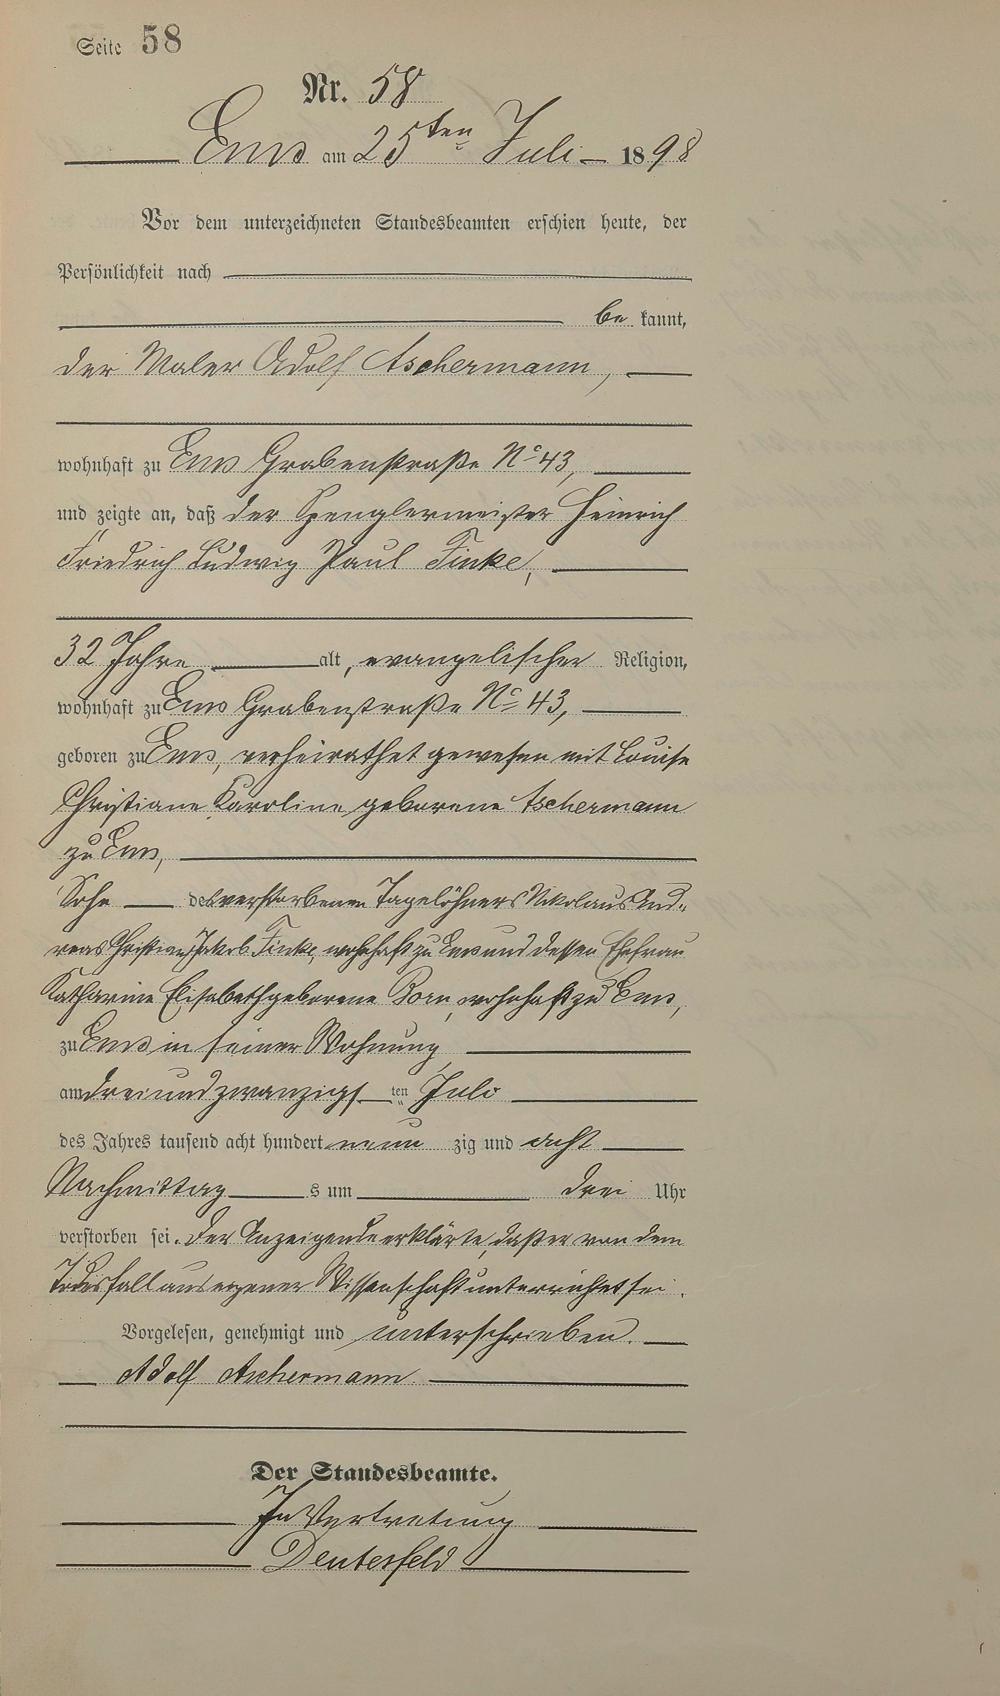 Seite 58
Nr. 58
Ems am 25ten Juli 1898
Vor dem unterzeichneten Standesbeamten erschien heute, der
Persönlichkeit nach
be kannt,
der Maler Adolf Aschermann,
wohnhaft zu Ems Grabenstraße No 43,
und zeigte an, daß der Spenglermeister Heinrich
Friedrich Ludwig Paul Finke,
32 Jahre alt, evangelischer Religion,
wohnhaft zu Ems Grabenstraße No 43,
geboren zu Ems, verheirathet gewesen mit Louise
Christiane Karoline geborene Aschermann
zu Ems,
Sohn des verstorbenen Tagelöhners Nikolaus And-
reas Christian Jakob Finke, wohnhaft zu Ems und dessen Ehefrau
Katharine Elisabeth geborene Born, wohnhaft zu Ems,
zu Ems in seiner Wohnung
am dreiundzwanzigs ten Juli
des Jahres tausend acht hundert neun zig und acht
Nachmittag s um drei Uhr
verstorben sei. Der Anzeigende erklärte, daß er von dem
Todesfall aus eigener Wissenschaft unterrichtet sei.
Vorgelesen, genehmigt und unterschrieben.
Adolf Aschermann
Der Standesbeamte.
In Vertretung
Deutesfeld